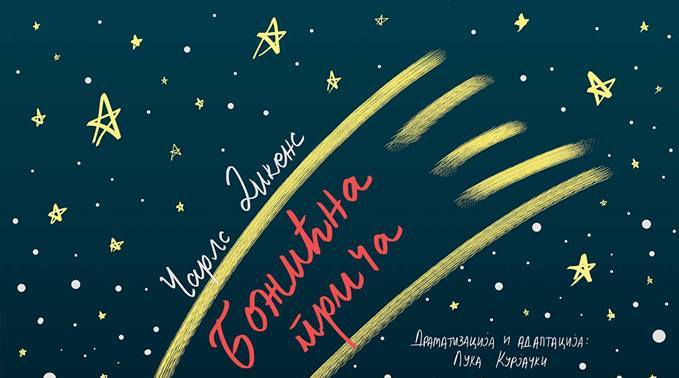 Чарлс Дикенс
Божићна
прича
Драматизација и адаптација:
Лука Курјачки